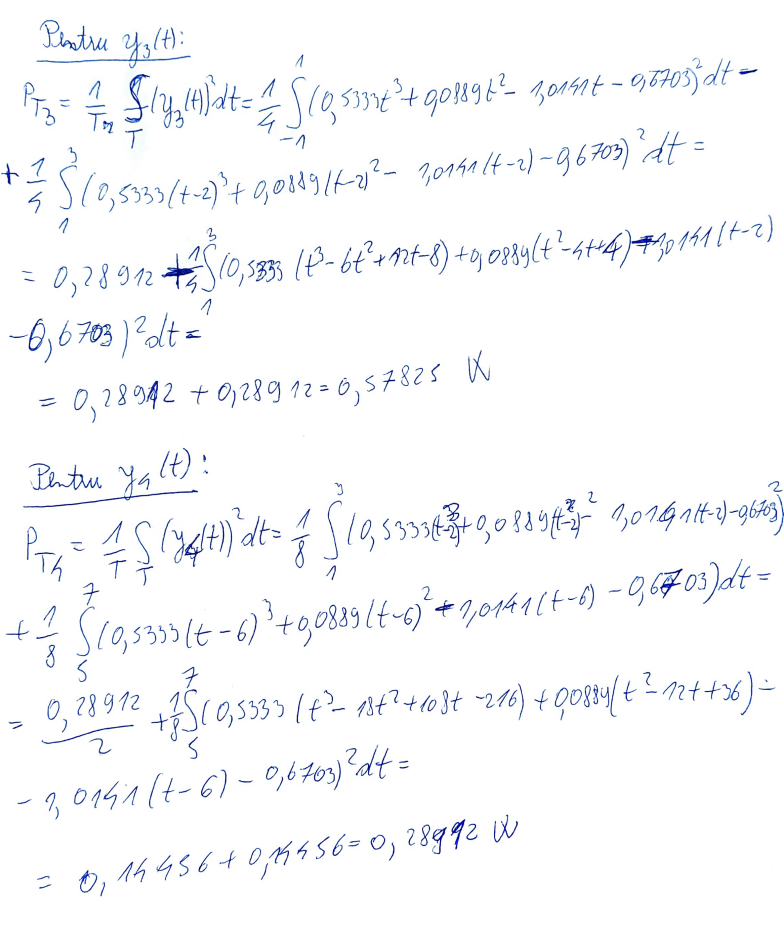 Pentru y₃(t):
P_T₃ = 1/T₁ ∫_T (y₃(t))² dt = 1/4 ∫_{-1}^{1} (0,5333t³ + 0,0889t² - 1,0141t - 0,6703)² dt -
+ 1/4 ∫_{1}^{3} (0,5333(t-2)³ + 0,0889(t-2)² - 1,0141(t-2) - 0,6703)² dt =
= 0,28912 + 1/4 ∫_{1}^{3} (0,5333 (t³ - 6t² + 12t - 8) + 0,0889(t² - 4t + 4) - 1,0141(t-2)
- 0,6703)² dt =
= 0,28912 + 0,28912 = 0,57825 W
Pentru y₄(t):
P_T₄ = 1/T ∫_T (y₄(t))² dt = 1/8 ∫_{1}^{3} (0,5333(t-2)³ + 0,0889(t-2)² - 1,0141(t-2) - 0,6703)²
+ 1/8 ∫_{5}^{7} (0,5333(t-6)³ + 0,0889(t-6)² - 1,0141(t-6) - 0,6703) dt =
= 0,28912/2 + 1/8 ∫_{5}^{7} (0,5333 (t³ - 18t² + 108t - 216) + 0,0889(t² - 12t + 36) -
- 1,0141(t-6) - 0,6703)² dt =
= 0,14456 + 0,14456 = 0,28912 W